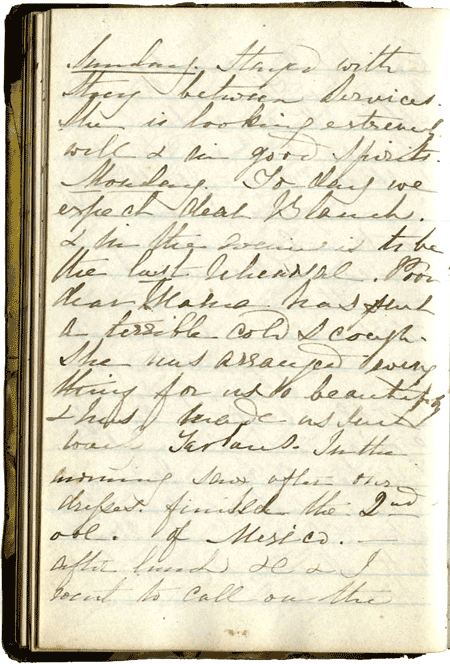 Sunday. Stayed with
Story between Services.
She is looking extremely
well & in good Spirits.
Monday. To day we
expect dear Blanch.
& in the evening is to be
the last rehearsal. Poor
dear Mama has such
a terrible cold & cough.
She has arranged every
thing for us so beautifully
& has made us such
Tarlans. In the
morning saw after our
dresses. finished the 2nd
vol. of Mexico. —
after lunch & I
went to call on the